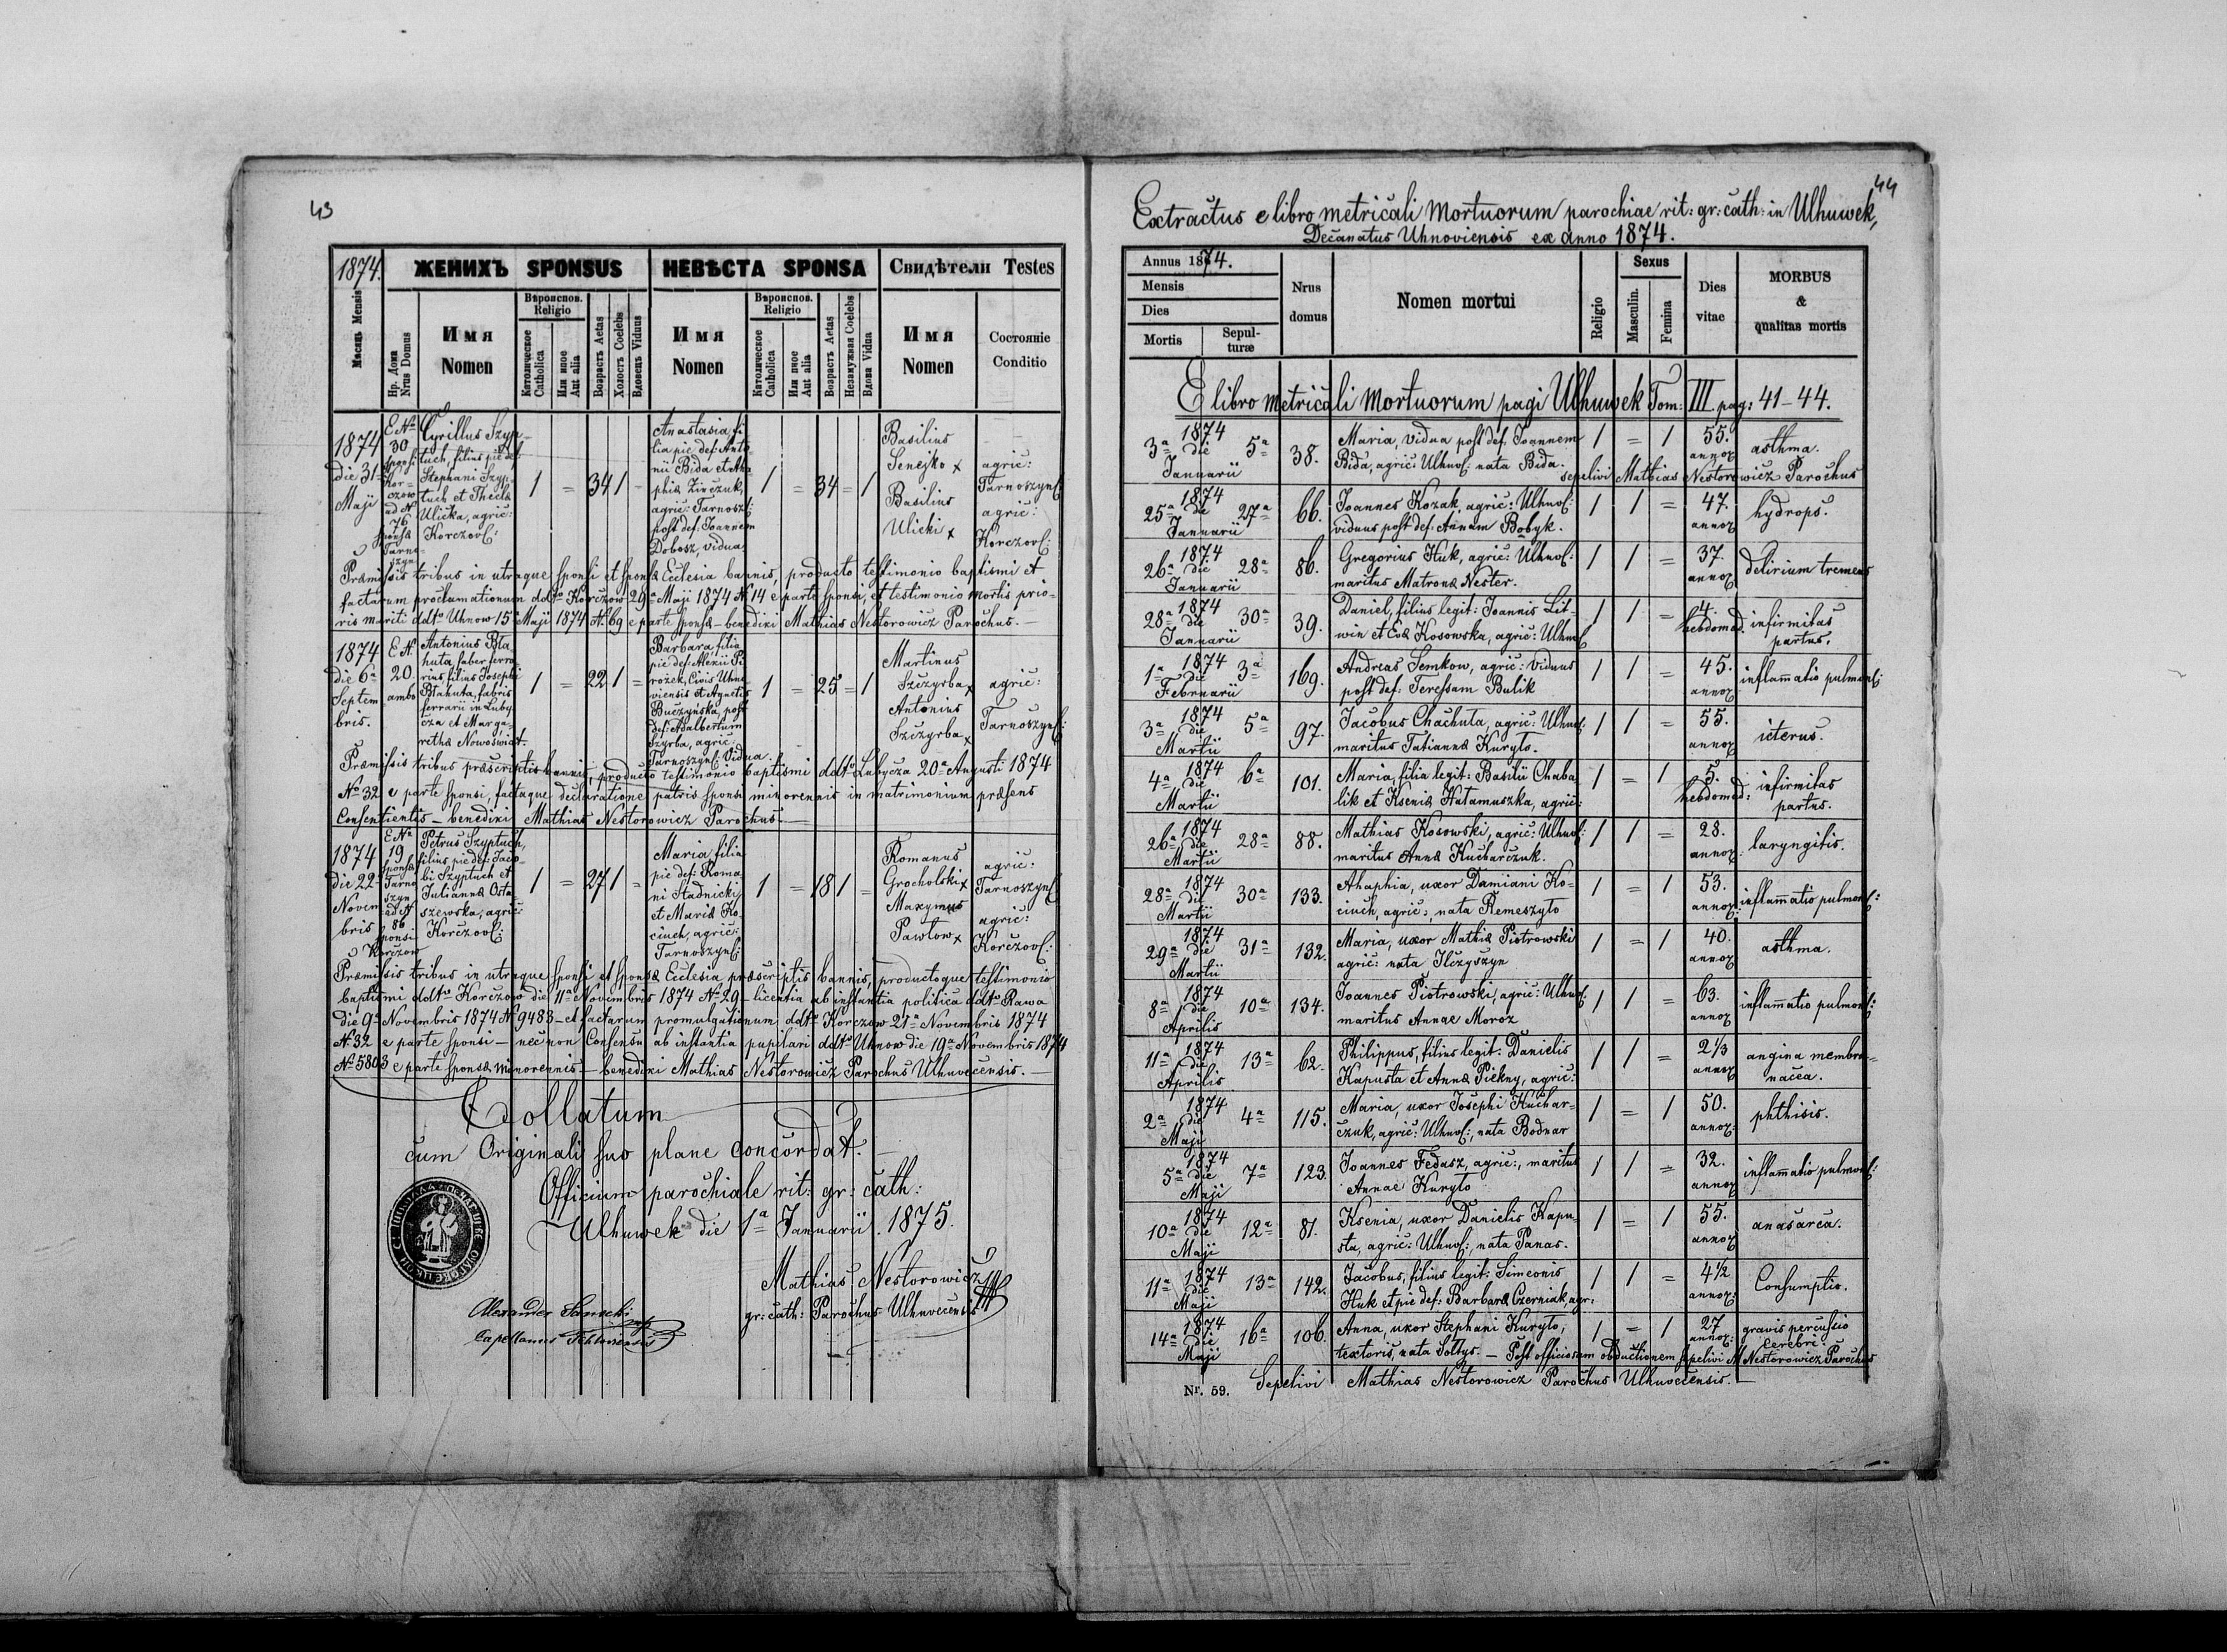 43
1874. ЖЕНИХЪ SPONSUS НЕВѢСТА SPONSA Свидѣтели Testes
Мѣсяць Mensis
Нр. Дома Nrus Domus
Имя Nomen
Вѣроиспов. Religio
Католическое Catholica
Или иное Aut alia
Возрастъ Aetas
Холостъ Coelebs
Вдовецъ Viduus
Имя Nomen
Вѣроиспов. Religio
Католическое Catholica
Или иное Aut alia
Возрастъ Aetas
Незамужная Coelebs
Вдова Vidua
Имя Nomen
Состояніе Conditio
1874
die 31
Maji
E No
30
sponsi
Kor-
czow
ad N
76
sponsæ
Tarno-
szyn
Cyrillus Szyp-
tuch, filius pie def:
Stephani Szyp-
tuch et Theclæ
Ulicka, agric:
Korczovs:
1 = 34 1 -
Anastasia fi
lia pie def: Anto-
nii Bida et Aha-
phiæ Zinczuk,
agric: Tarnosz:
post def: Joannem
Dobosz, vidua
1 = 34 = 1
Basilius
Senejko x
Basilius
Ulicki x
agric:
Tarnoszyns:
agric:
Korczovs:
Præmissis tribus in utraque sponsi et sponsæ Ecclesia bannis, producto testimonio baptismi et
factarum proclamationum ddto Korczow 29a Maji 1874 N 14 e parte sponsi, et testimonio mortis prio-
ris mariti ddto Uhnow 15a Maji 1874 N. 69 e parte sponsæ - benedixi Mathias Nestorowicz Parochus. -
1874
die 6a
Septem
bris.
E N.
20
ambo
Antonius Bła
huta faber ferra
rius, filius Josephi
Błahuta, fabris
ferrarii in Luby
cza et Marga-
rethæ Nowoświat.
1 = 22 1 =
Barbara filia
pie def: Alexii Pi
rożek, Civis Uhno
viensis et Agnetis
Buczyńska, post
def: Adalbertum
Szyrba, agric:
Tarnoszyns: Vidua.
1 = 25 = 1
Martinus
Szczyrba x
Antonius
Szczyrba x
agric:
Tarnoszyns:
Præmissis tribus præscriptis bannis, producto testimonio baptismi ddto Lubycza 20a Augusti 1874
No 32 e parte sponsi, factaque declaratione patris sponsi minorennis in matrimonium præsens
Consentientis - benedixi Mathias Nestorowicz Parochus.-
1874
die 22
Novem
bris
E No
19
sponsæ
Tarno
szyn
ad N
86
sponsi
Korczow
Petrus Szyptuch,
filius pie def: Jaco-
bi Szyptuch et
Julianæ Osta-
szewska, agric:
Korczovs:
1 = 27 1 =
Maria filia
pie def: Roma
ni Stadnicki
et Mariæ Ko-
ciuch, agric:
Tarnoszyns:
1 = 18 1 =
Romanus
Grocholski x
Maxymus
Pawlow x
agric:
Tarnoszyns:
agric:
Korczovs:
Præmissis tribus in utraque sponsi et sponsæ Ecclesia præscriptis bannis, productoque testimonio
baptismi ddto Korczow die 11a Novembris 1874 No 29 - licentia ab instantia politica ddto Rawa
die 9a Novembris 1874 N 9483 - et factarum promulgationum ddto Korczow 21a Novembris 1874
N 32 e parte sponsi - nec non Consensu ab instantia pupilari ddto Uhnow die 19a Novembris 1874
No 5803 e parte sponsæ minorennis - benedixi Mathias Nestorowicz Parochus Ulhuvecensis. -
Collatum
cum Originali suo plane concordat. -
Officium parochiale rit: gr: cath:
Ulhuwek die 1a Januarii 1875.
Mathias Nestorowicz
gr: cath: Parochus Ulhuvecensis
Alexander
Capellanus
44
Extractus e libro metricali Mortuorum parochiae rit: gr: cath: in Ulhuwek,
Decanatus Uhnoviensis ex anno 1874.
Annus 1874.
Mensis
Dies
Mortis
Sepul-
turæ
Nrus
domus
Nomen mortui
Religio
Sexus
Masculin.
Femina
Dies
vitae
MORBUS
&
qualitas mortis
E libro metricali Mortuorum pagi Ulhuwek Tom: III. pag: 41-44.
1874
3a die 5a
Januarii
38.
Maria, vidua post def. Joannem
Bida, agric: Ulhuvs: nata Bida.
1 = 1
55.
annor
asthma.
sepelivi Mathias Nestorowicz Parochus
1874
25a die 27a
Januarii
66.
Joannes Kozak, agric: Ulhuvs:
viduus post def: Annam Bobyk.
1 1 =
47.
annor
hydrops.
1874
26a die 28a
Januarii
86.
Gregorius Huk, agric: Ulhuvs:
maritus Matronæ Nester.
1 1 =
37.
annor
delirium tremens
1874
28a die 30a
Januarii
39.
Daniel, filius legit: Joannis Lit-
win et Evæ Kosowska, agric: Ulhuvs
1 1 =
4.
hebdomad.
infirmitas
partus.
1874
1a die 3a
Februarii
169.
Andreas Semkow, agric: viduus
post def: Teressam Bulik
1 1 =
45.
annor
inflam̄atio pulmons:
1874
3a die 5a
Martii
97.
Jacobus Chachuta, agric: Ulhuvs:
maritus Tatiannæ Kuryło.
1 1 =
55.
annor
icterus.
1874
4a die 6a
Martii
101.
Maria, filia legit: Basilii Chaba
lik et Kseniæ Hałamuszka, agric:
1 = 1
5.
hebdomad:
infirmitas
partus.
1874
26a die 28a
Martii
88.
Mathias Kosowski, agric: Ulhuvs:
maritus Annæ Kucharczuk.
1 1 =
28.
annor:
laryngitis.
1874
28a die 30a
Martii
133.
Ahaphia, uxor Damiani Ko-
ciuch, agric:, nata Remeszyło
1 = 1
53.
annor:
inflam̄atio pulmons:
1874
29a die 31a
Martii
132.
Maria, uxor Mathiæ Piotrowski
agric: nata Ilczyszyn
1 = 1
40.
annor
asthma.
1874
8a die 10a
Aprilis
134.
Joannes Piotrowski, agric: Ulhuvs:
maritus Annae Moroz
1 1 =
63.
annor
inflam̄atio pulmons:
1874
11a die 13a
Aprilis
62.
Philippus, filius legit: Danielis
Kapusta et Annæ Piekny, agric:
1 1 =
2 1/3
annor
angina membra-
nacea.
1874
2a die 4a
Maji
115.
Maria, uxor Josephi Kuchar-
czuk, agric: Ulhuvs:, nata Bodnar
1 = 1
50.
annor:
phthisis.
1874
5a die 7a
Maji
123.
Joannes Fedasz, agric:, maritus
Annae Kuryło
1 1 =
32.
annor
inflam̄atio pulmons:
1874
10a die 12a
Maji
81.
Ksenia, uxor Danielis Kapu-
sta, agric: Ulhuvs:, nata Panas.
1 = 1
55.
annor
anasarca.
1874
11a die 13a
Maji
142.
Jacobus, filius legit: Simeonis
Huk et pie def: Barbaræ Czerniak, agr:
1 1 =
4 1/2
annor:
Consumptio.
1874
14a die 16a
Maji
106.
Anna, uxor Stephani Kuryło,
textoris, nata Soltys. - Post officiosam obductionem sepelivi M Nestorowicz Parochus
1 = 1
27
annor:
gravis percussio
cerebri.
Nr. 59. Sepelivi Mathias Nestorowicz Parochus Ulhuvecensis. -